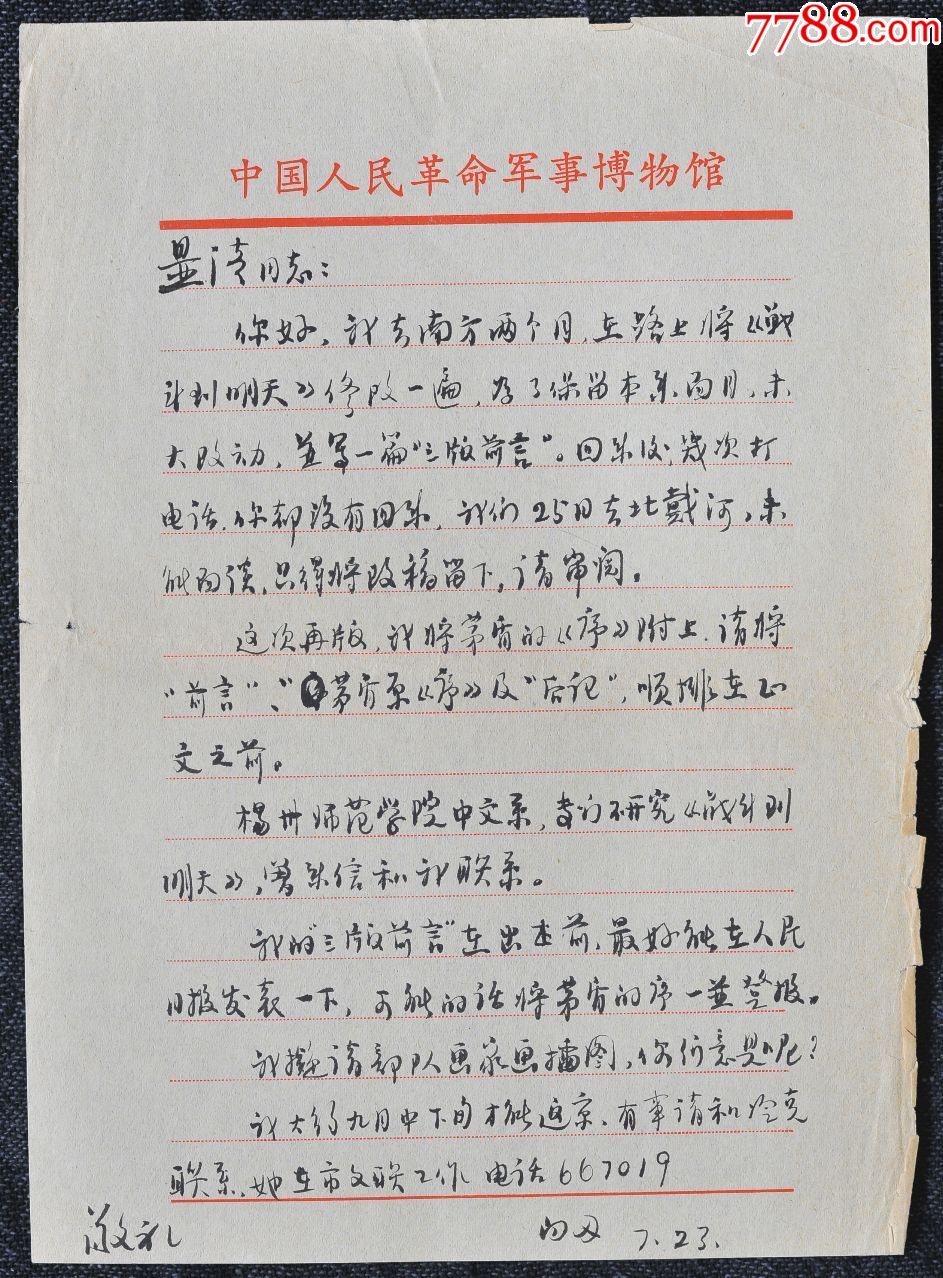 7788.com
中国人民革命军事博物馆
显清同志：
你好，我去南方两个月，在路上将《战
斗到明天》修改一遍，为了保留本来面目，未
大改动，並写一篇“三版前言”。回来后，几次打
电话，你都没有回来，我们25日去北戴河，未
能面谈，只得将改稿留下，请审阅。
这次再版，我将茅盾的《序》附上，请将
“前言”、茅盾原《序》及“后记”，顺排在正
文之前。
扬州师范学院中文系，专门研究《战斗到
明天》，曾来信和我联系。
我的“三版前言”在出书前，最好能在人民
日报发表一下，可能的话将茅盾的序一並登报。
我拟请部队画家画插图，你们意见呢？
我大约九月中下旬才能返京，有事请和冷克
联系，她在市文联工作 电话667019
敬礼
白刃 7.23.